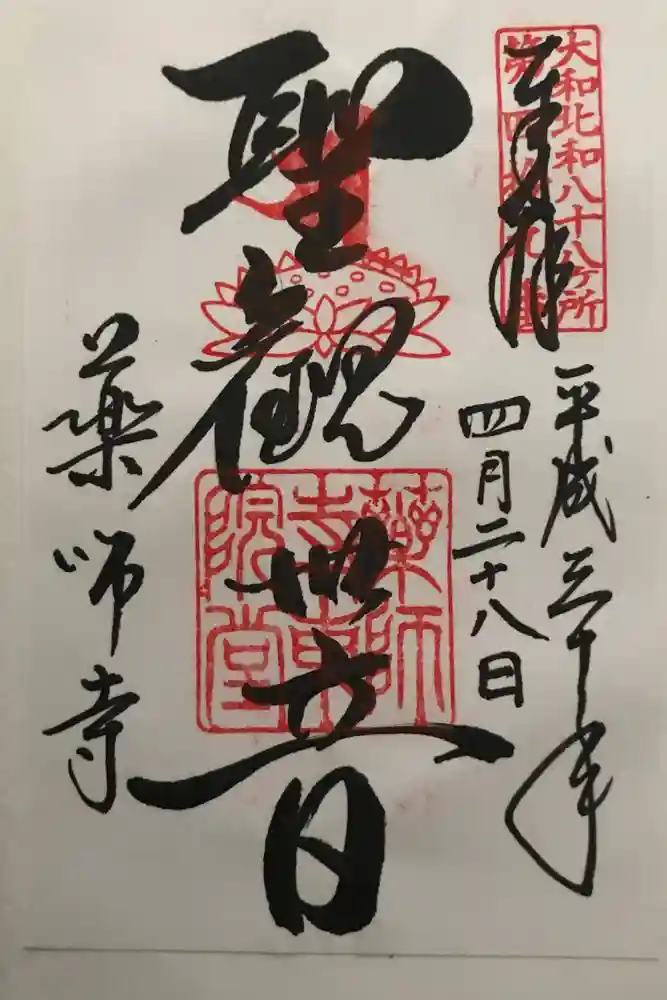 奉拝
大和北和八十八ヶ所
第四拾九番
平成三十年
四月二十八日
聖観世音
藥師寺東院堂
藥師寺